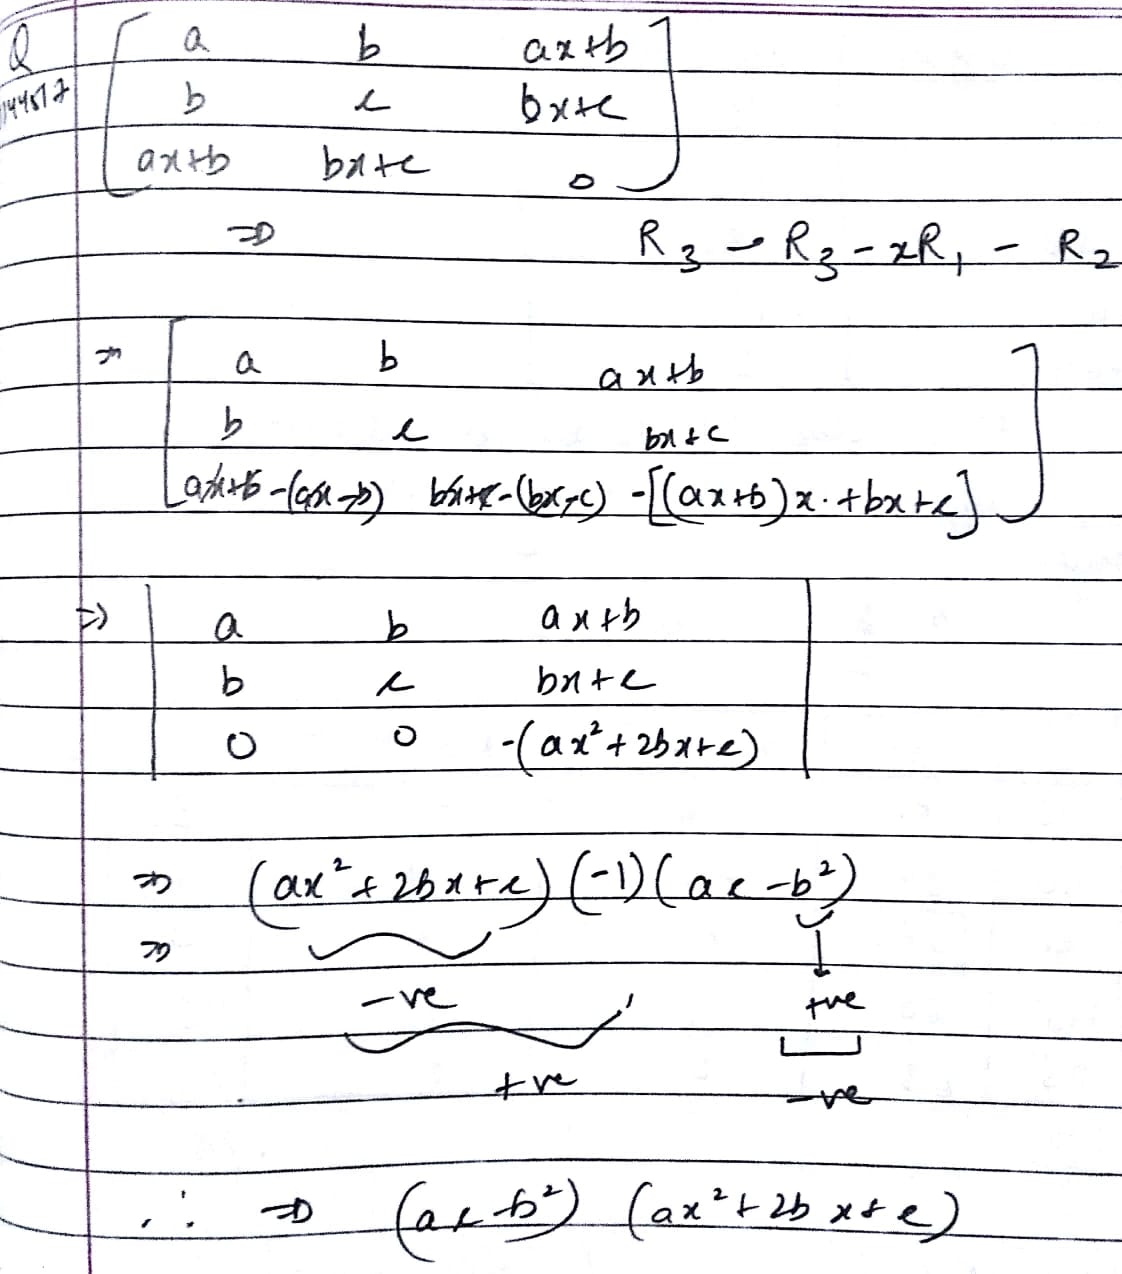 Q a b ax+b
144517 b c bx+c
ax+b bx+c 0
⇒ R3 → R3 - xR1 - R2
⇒ a b ax+b
b c bx+c
ax+b-(ax+b) bx+c-(bx+c) -[(ax+b)x.+bx+c]
⇒ a b ax+b
b c bx+c
0 0 -(ax²+2bx+c)
⇒ (ax²+2bx+c)(-1)(ac-b²)
⇒
-ve +ve
+ve -ve
∴ ⇒ (ac-b²) (ax²+2bx+c)